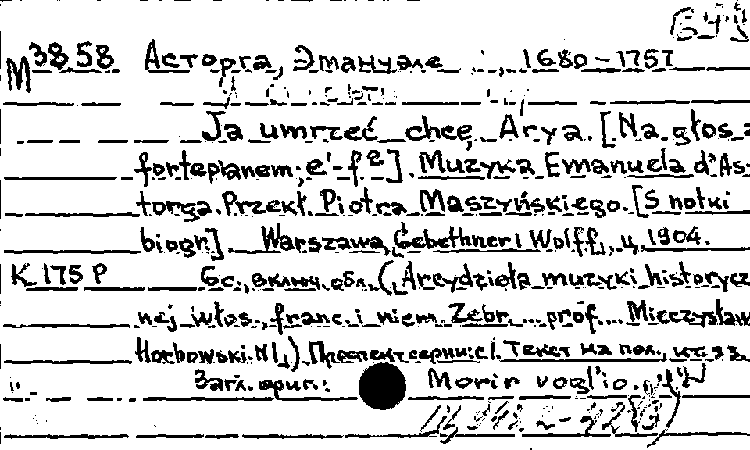 М 38.58 Асторга, Эмануэле 1680-1757
Ja umrzeć chcę. Arya. [Na głos z
fortepianem; e'-f²]. Muzyka Emanuela d'As-
torga. Przekł. Piotra Maszyńskiego. [S notki
biogr]. Warszawa, Gebethner i Wolff, ц. 1904.
K 175 P 6 с., включ. обл. (Arcydzieła muzyki historycz-
nej włos., franc. i niem. Zebr. ... prof. ... Mieczysław
Horbowski. N 1,) Проспект серии: с 1. Текст на пол., ит. яз.
Загл. ориг.: Morir voglio.